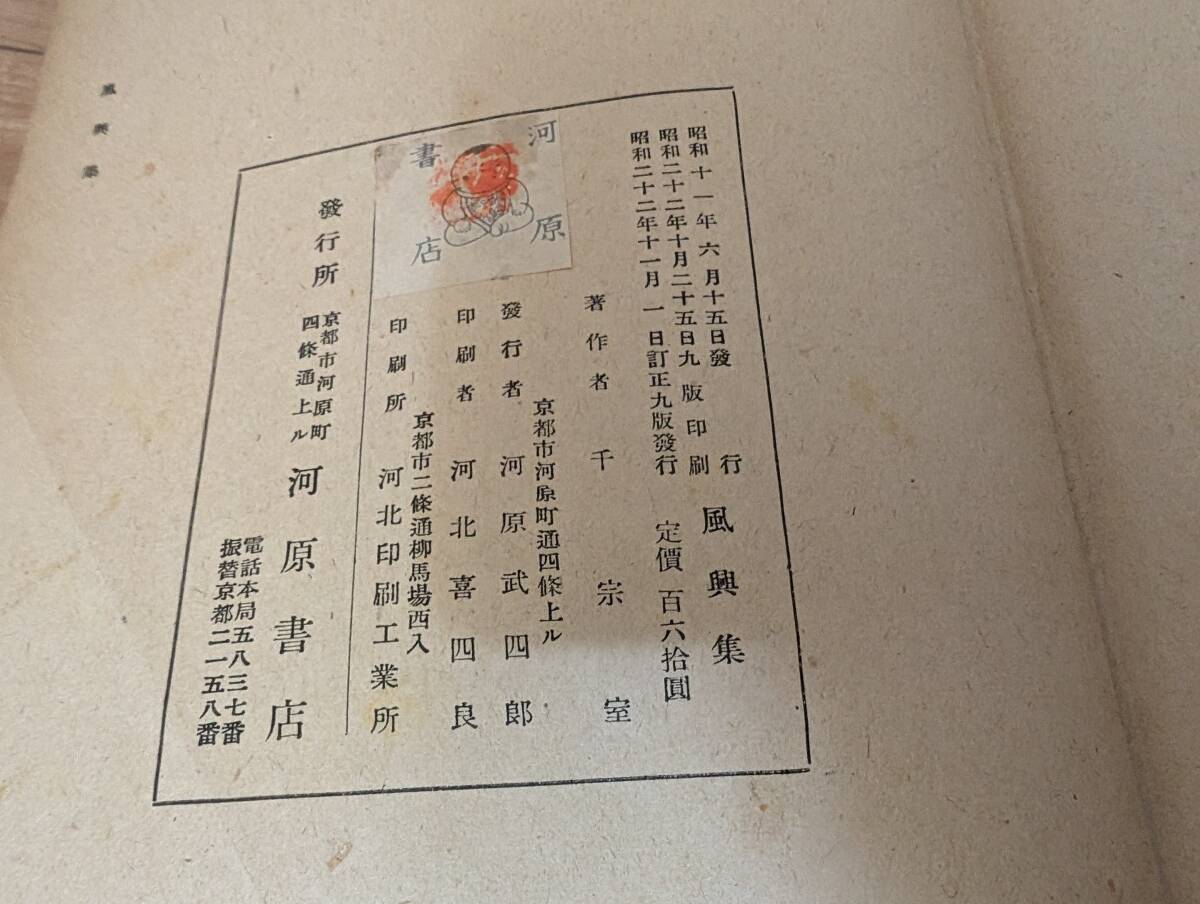 昭和十一年六月十五日發行
昭和二十二年十月二十五日九版印刷
昭和二十二年十一月一日訂正九版發行
風興集
定價 百六拾圓
著作者 千宗室
京都市河原町通四條上ル
發行者 河原武四郎
印刷者 河北喜四良
京都市二條通柳馬場西入
印刷所 河北印刷工業所
河原
書店
發行所
京都市河原町
四條通上ル
河原書店
電話本局五八三七番
振替京都二一五八番
風興集